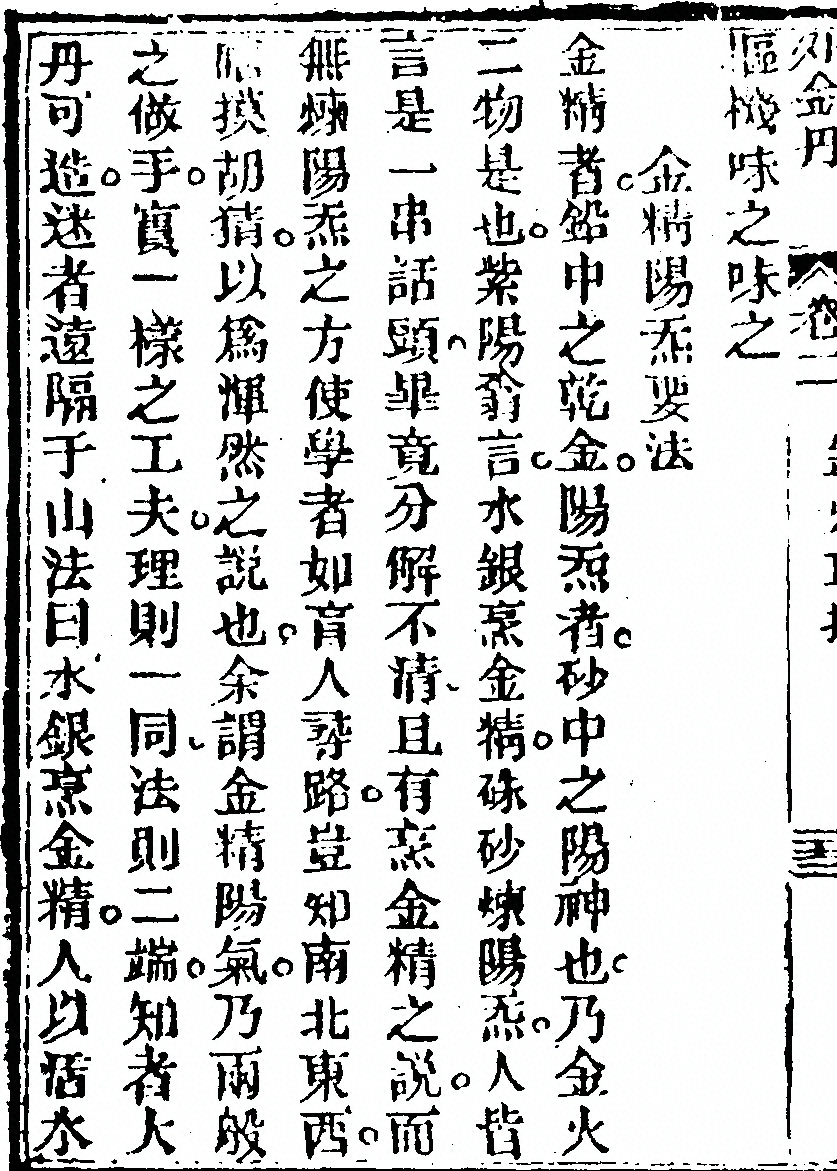 外金丹 卷二 三
樞機味之味之
金精陽炁要法
金精者鉛中之乾金陽炁者砂中之陽神也乃金火
二物是也紫陽翁言水銀烹金精硃砂煉陽炁人皆
言是一串話頭畢竟分解不清且有烹金精之說而
無煉陽炁之方使學者如盲人尋路豈知南北東西
摸胡猜以爲渾然之說也余謂金精陽氣乃兩般
之做手實一樣之工夫理則一同法則二端知者大
丹可造迷者遠隔于山法曰水銀烹金精人以活水